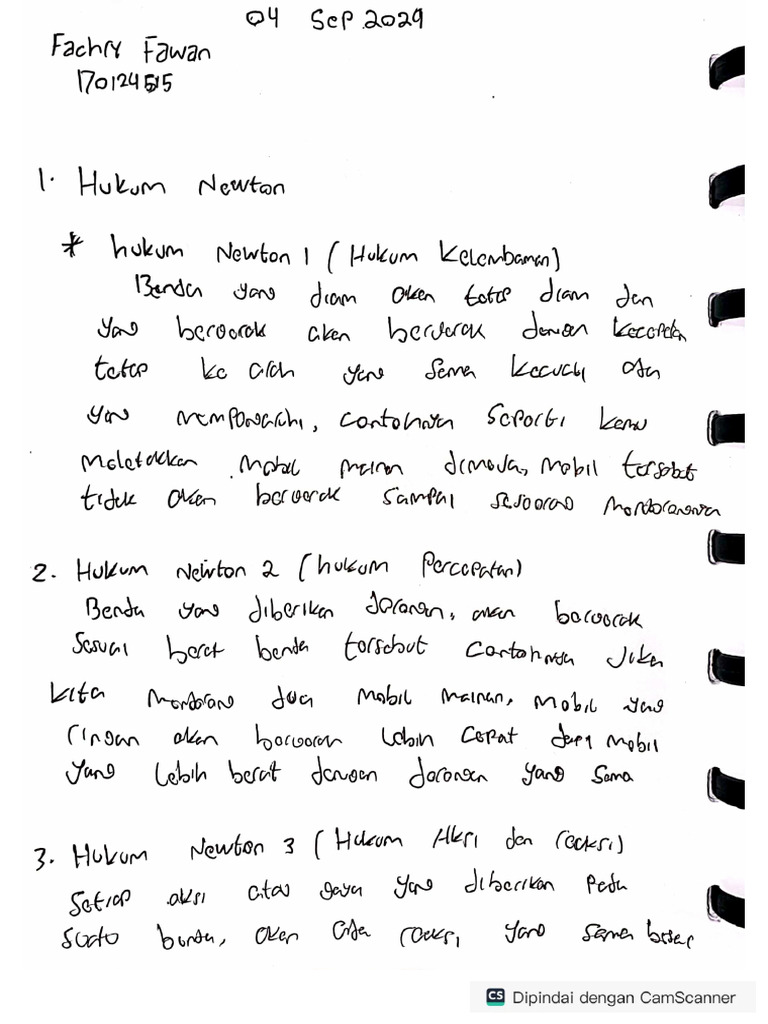 04 Sep 2029
Fachry Fawan
170124515
1. Hukum Newton
* hukum Newton 1 (Hukum Kelembaman)
Benda yang diam akan tetap diam dan
yang bergerak akan bergerak dengan kecepatan
tetap ke arah yang sama kecuali ada
yang mempengaruhi, contohnya seperti kamu
meletakkan mobil mainan dimeja, mobil tersebut
tidak akan bergerak sampai seseorang mendorongnya
2. Hukum Newton 2 (hukum Percepatan)
Benda yang diberikan dorongan, akan bergerak
Sesuai berat benda tersebut contohnya Jika
kita mendorong dua mobil mainan, mobil yang
ringan akan bergerak lebih cepat dari mobil
yang lebih berat dengan dorongan yang sama
3. Hukum Newton 3 (Hukum Aksi dan reaksi)
Setiap aksi atau gaya yang diberikan pada
suatu benda, akan ada reaksi yang sama besar
CS Dipindai dengan CamScanner